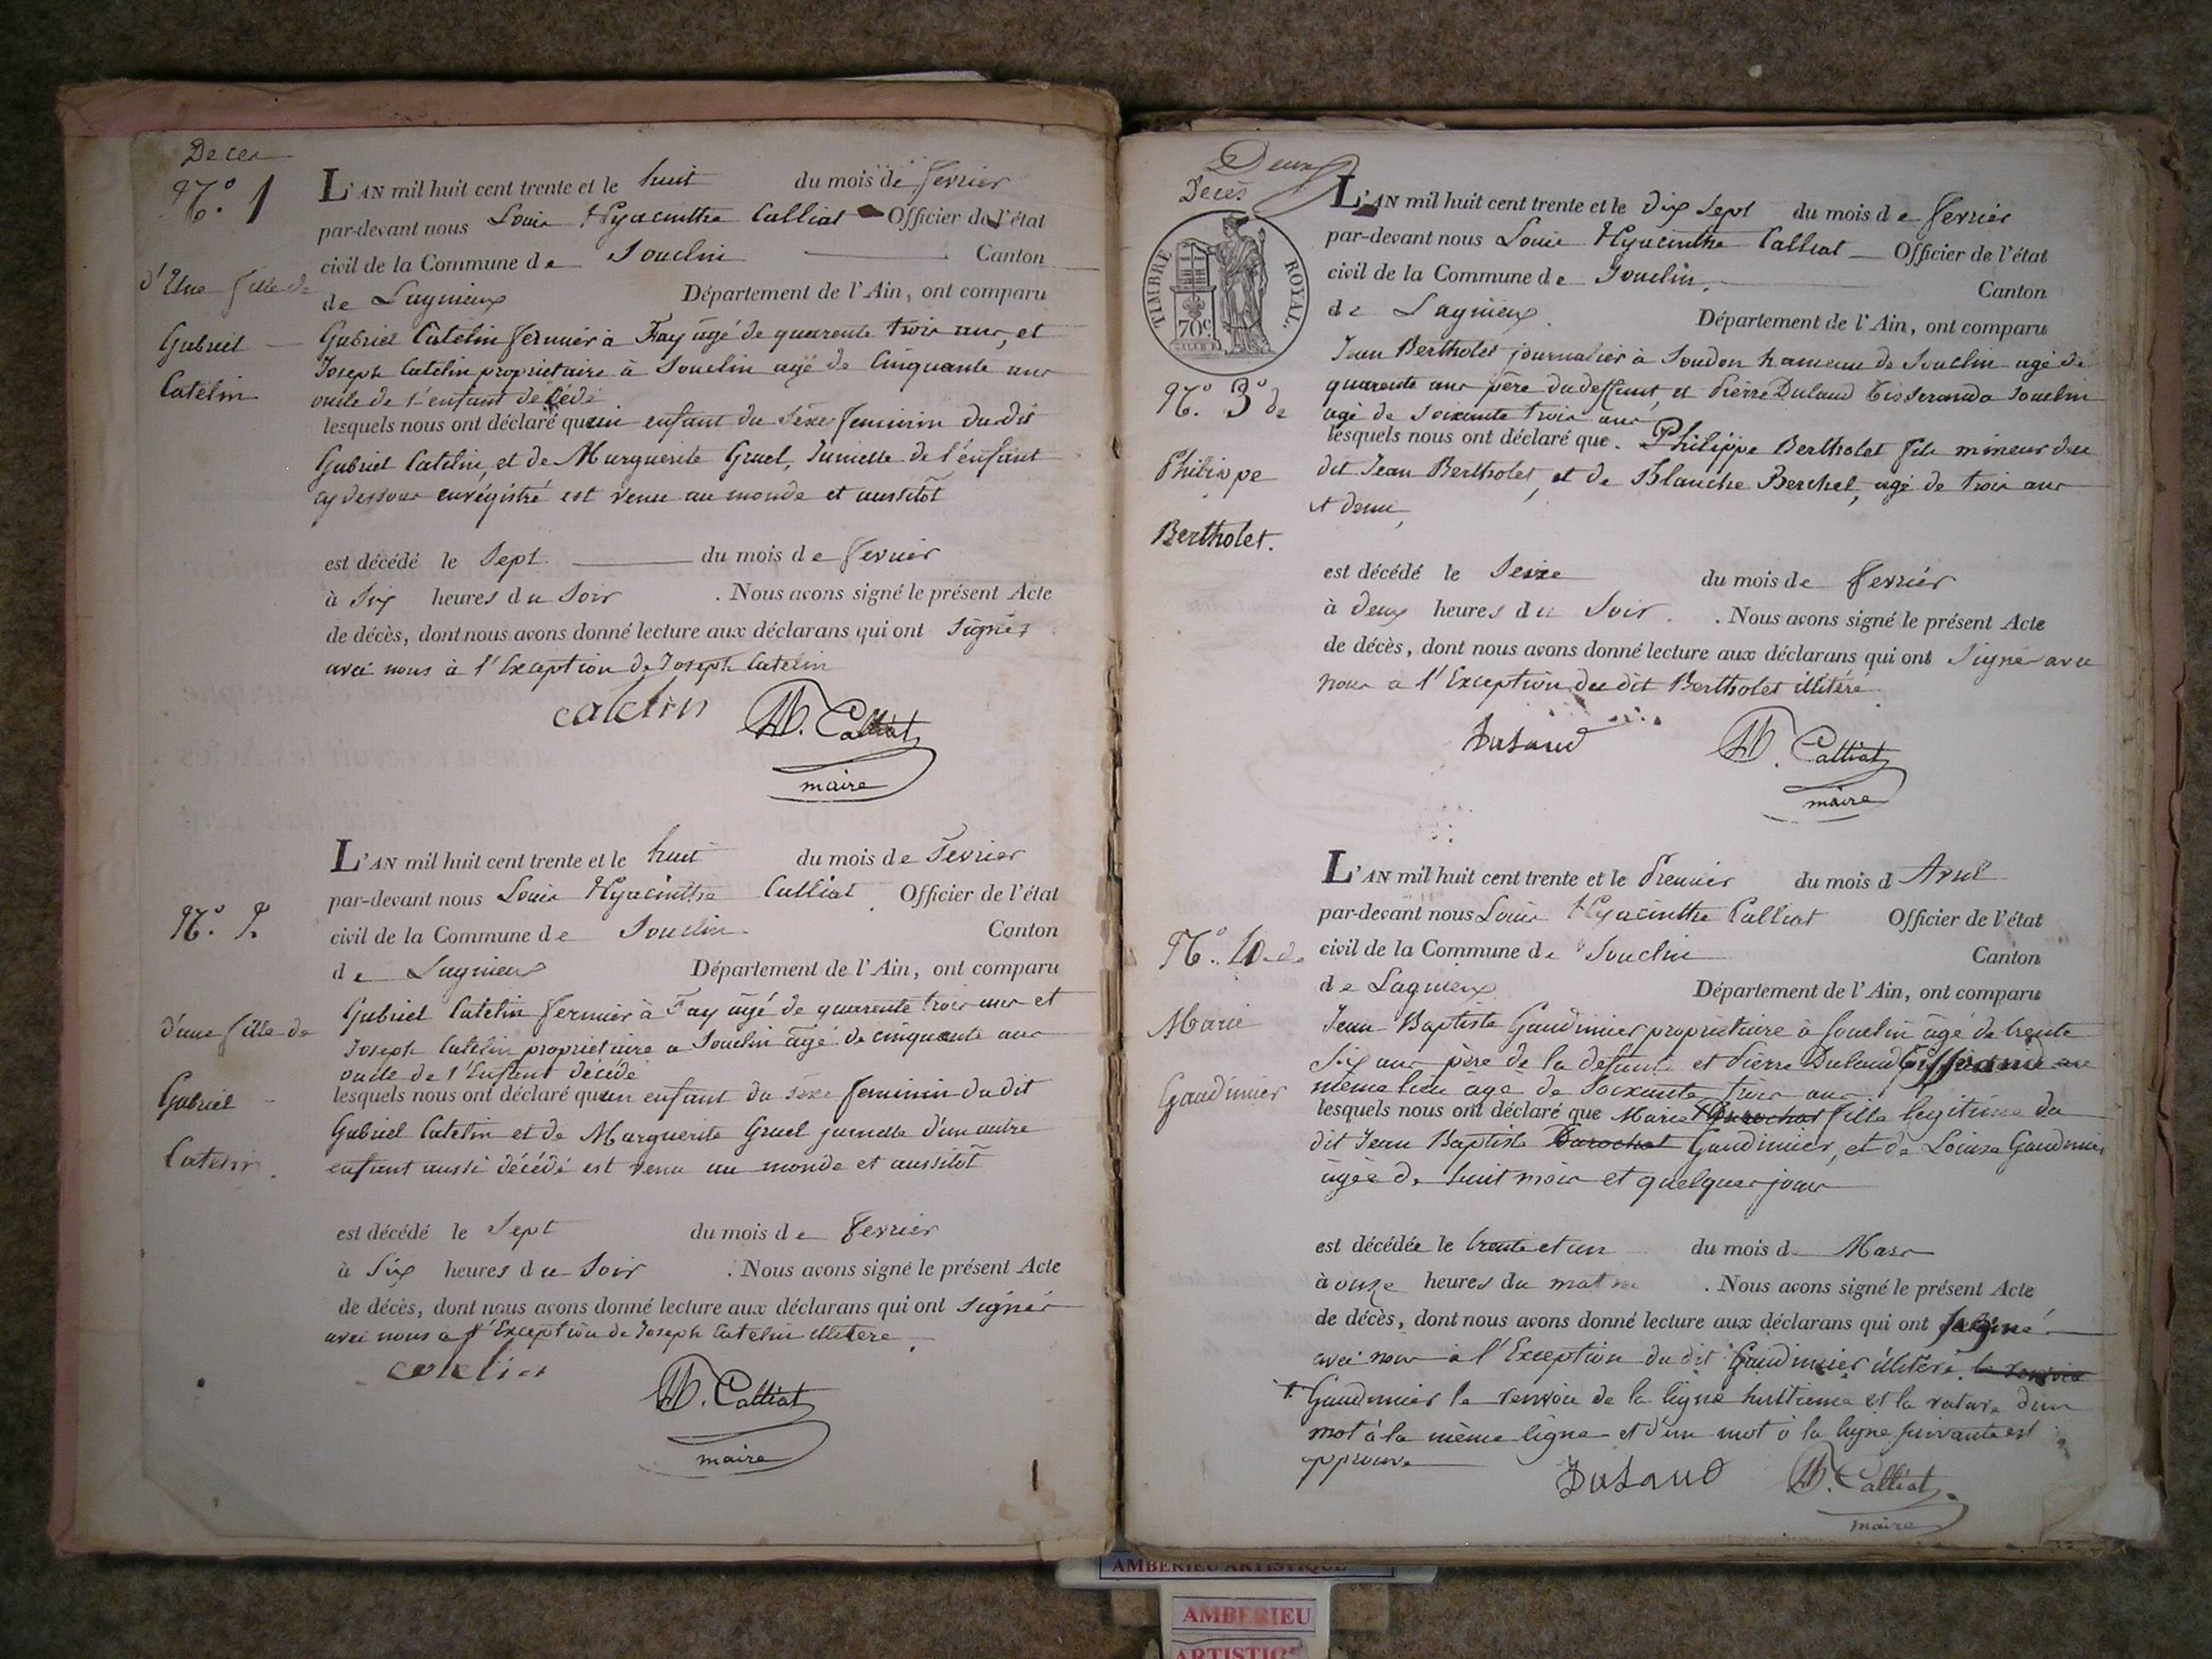 Décès
N.° 1
d'Une fille de
Gabriel
Catelin
L'AN mil huit cent trente et le huit du mois de fevrier
par-devant nous Louis Hyacinthe Calliat Officier de l'état
civil de la Commune de Souclin Canton
de Lagnieux Département de l'Ain, ont comparu
Gabriel Catelin fermier à Fay âgé de quarente trois ans, et
Joseph Catelin proprietaire à Souclin agé de Cinquante ans
oncle de l'enfant décédé
lesquels nous ont déclaré qu'un enfant du séxe feminin dudit
Gabriel Catelin, et de Marguerite Gruel, Jumelle de l'énfant
cy dessous enrégistré est venu au monde et aussitôt
est décédé le Sept du mois de fevrier
à Six heures du Soir . Nous avons signé le présent Acte
de décès, dont nous avons donné lecture aux déclarans qui ont Signés
avec nous à l'Exception de Joseph Catelin
catelin H. Calliat
maire
N.° 2.
d'une fille de
Gabriel
Catelin.
L'AN mil huit cent trente et le huit du mois de Fevrier
par-devant nous Louis Hyacinthe Calliat Officier de l'état
civil de la Commune de Souclin Canton
de Lagnieux Département de l'Ain, ont comparu
Gabriel Catelin fermier à Fay âgé de quarente trois ans et
Joseph Catelin proprietaire a Souclin âgé de cinquante ans
oncle de l'Enfant décédé
lesquels nous ont déclaré qu'un enfant du séxe feminin du dit
Gabriel Catelin et de Marguerite Gruel jumelle d'un autre
enfant aussi décédé est venu au monde et aussitôt
est décédé le Sept du mois de fevrier
à Six heures du Soir . Nous avons signé le présent Acte
de décès, dont nous avons donné lecture aux déclarans qui ont Signés
avec nous a l'Exception de Joseph Catelin illitere
catelin
H. Calliat
maire
1
Deux
Décès
TIMBRE ROYAL.
70c
N.° 3.° de
Philippe
Bertholet.
L'AN mil huit cent trente et le dix Sept du mois de fevrier
par-devant nous Louis Hyacinthe Calliat Officier de l'état
civil de la Commune de Souclin. Canton
de Lagnieux Département de l'Ain, ont comparu
Jean Bertholet journalier à Soudon hameau de Souclin agé de
quarente ans père du deffunt, et Pierre Dulaud Tisserand a Souclin
agé de soixante trois ans
lesquels nous ont déclaré que. Philippe Bertholet fils mineur du
dit Jean Bertholet, et de Blanche Berchet, agé de trois ans
et demi,
est décédé le Seize du mois de fevrier
à deux heures du Soir. . Nous avons signé le présent Acte
de décès, dont nous avons donné lecture aux déclarans qui ont Signé avec
nous a l'Exception du dit Bertholet illitéré
Dulaud H. Calliat
maire
N.° 4 de
Marie
Gaudinier
L'AN mil huit cent trente et le Premier du mois d Avril
par-devant nous Louis Hyacinthe Calliat Officier de l'état
civil de la Commune de Souclin Canton
de Lagnieux Département de l'Ain, ont comparu
Jean Baptiste Gaudinier proprietaire à Souclin âgé de trente
Six ans père de la defunte et Pierre Dulaud Tisserand au
même lieu âgé de Soixante trois ans
lesquels nous ont déclaré que Marie Durochat fille legitime du
dit Jean Baptiste Durochat Gaudinier, et de Louise Gaudinier
âgée de huit mois et quelques jours
est décédée le trente et un du mois d Mars
à onze heures du matin . Nous avons signé le présent Acte
de décès, dont nous avons donné lecture aux déclarans qui ont signé
avec nous à l'Exception du dit Gaudinier illitéré. le renvoi
Gaudinier le renvoi de la ligne huitieme et la rature d'un
mot à la même ligne et d'un mot à la ligne suivante est
approuvé
Dulaud H. Calliat
maire
AMBERIEU ARTISTIQUE
AMBERIEU
ARTISTIQUE